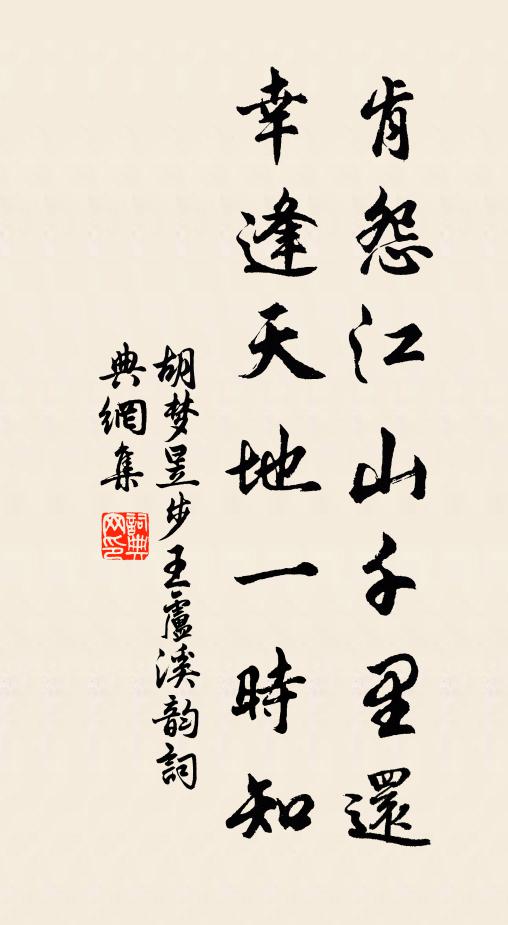 肯怨江山千里還
幸逢天地一時知
胡梦昱步王廬溪韵詞
典網集
詞典网印